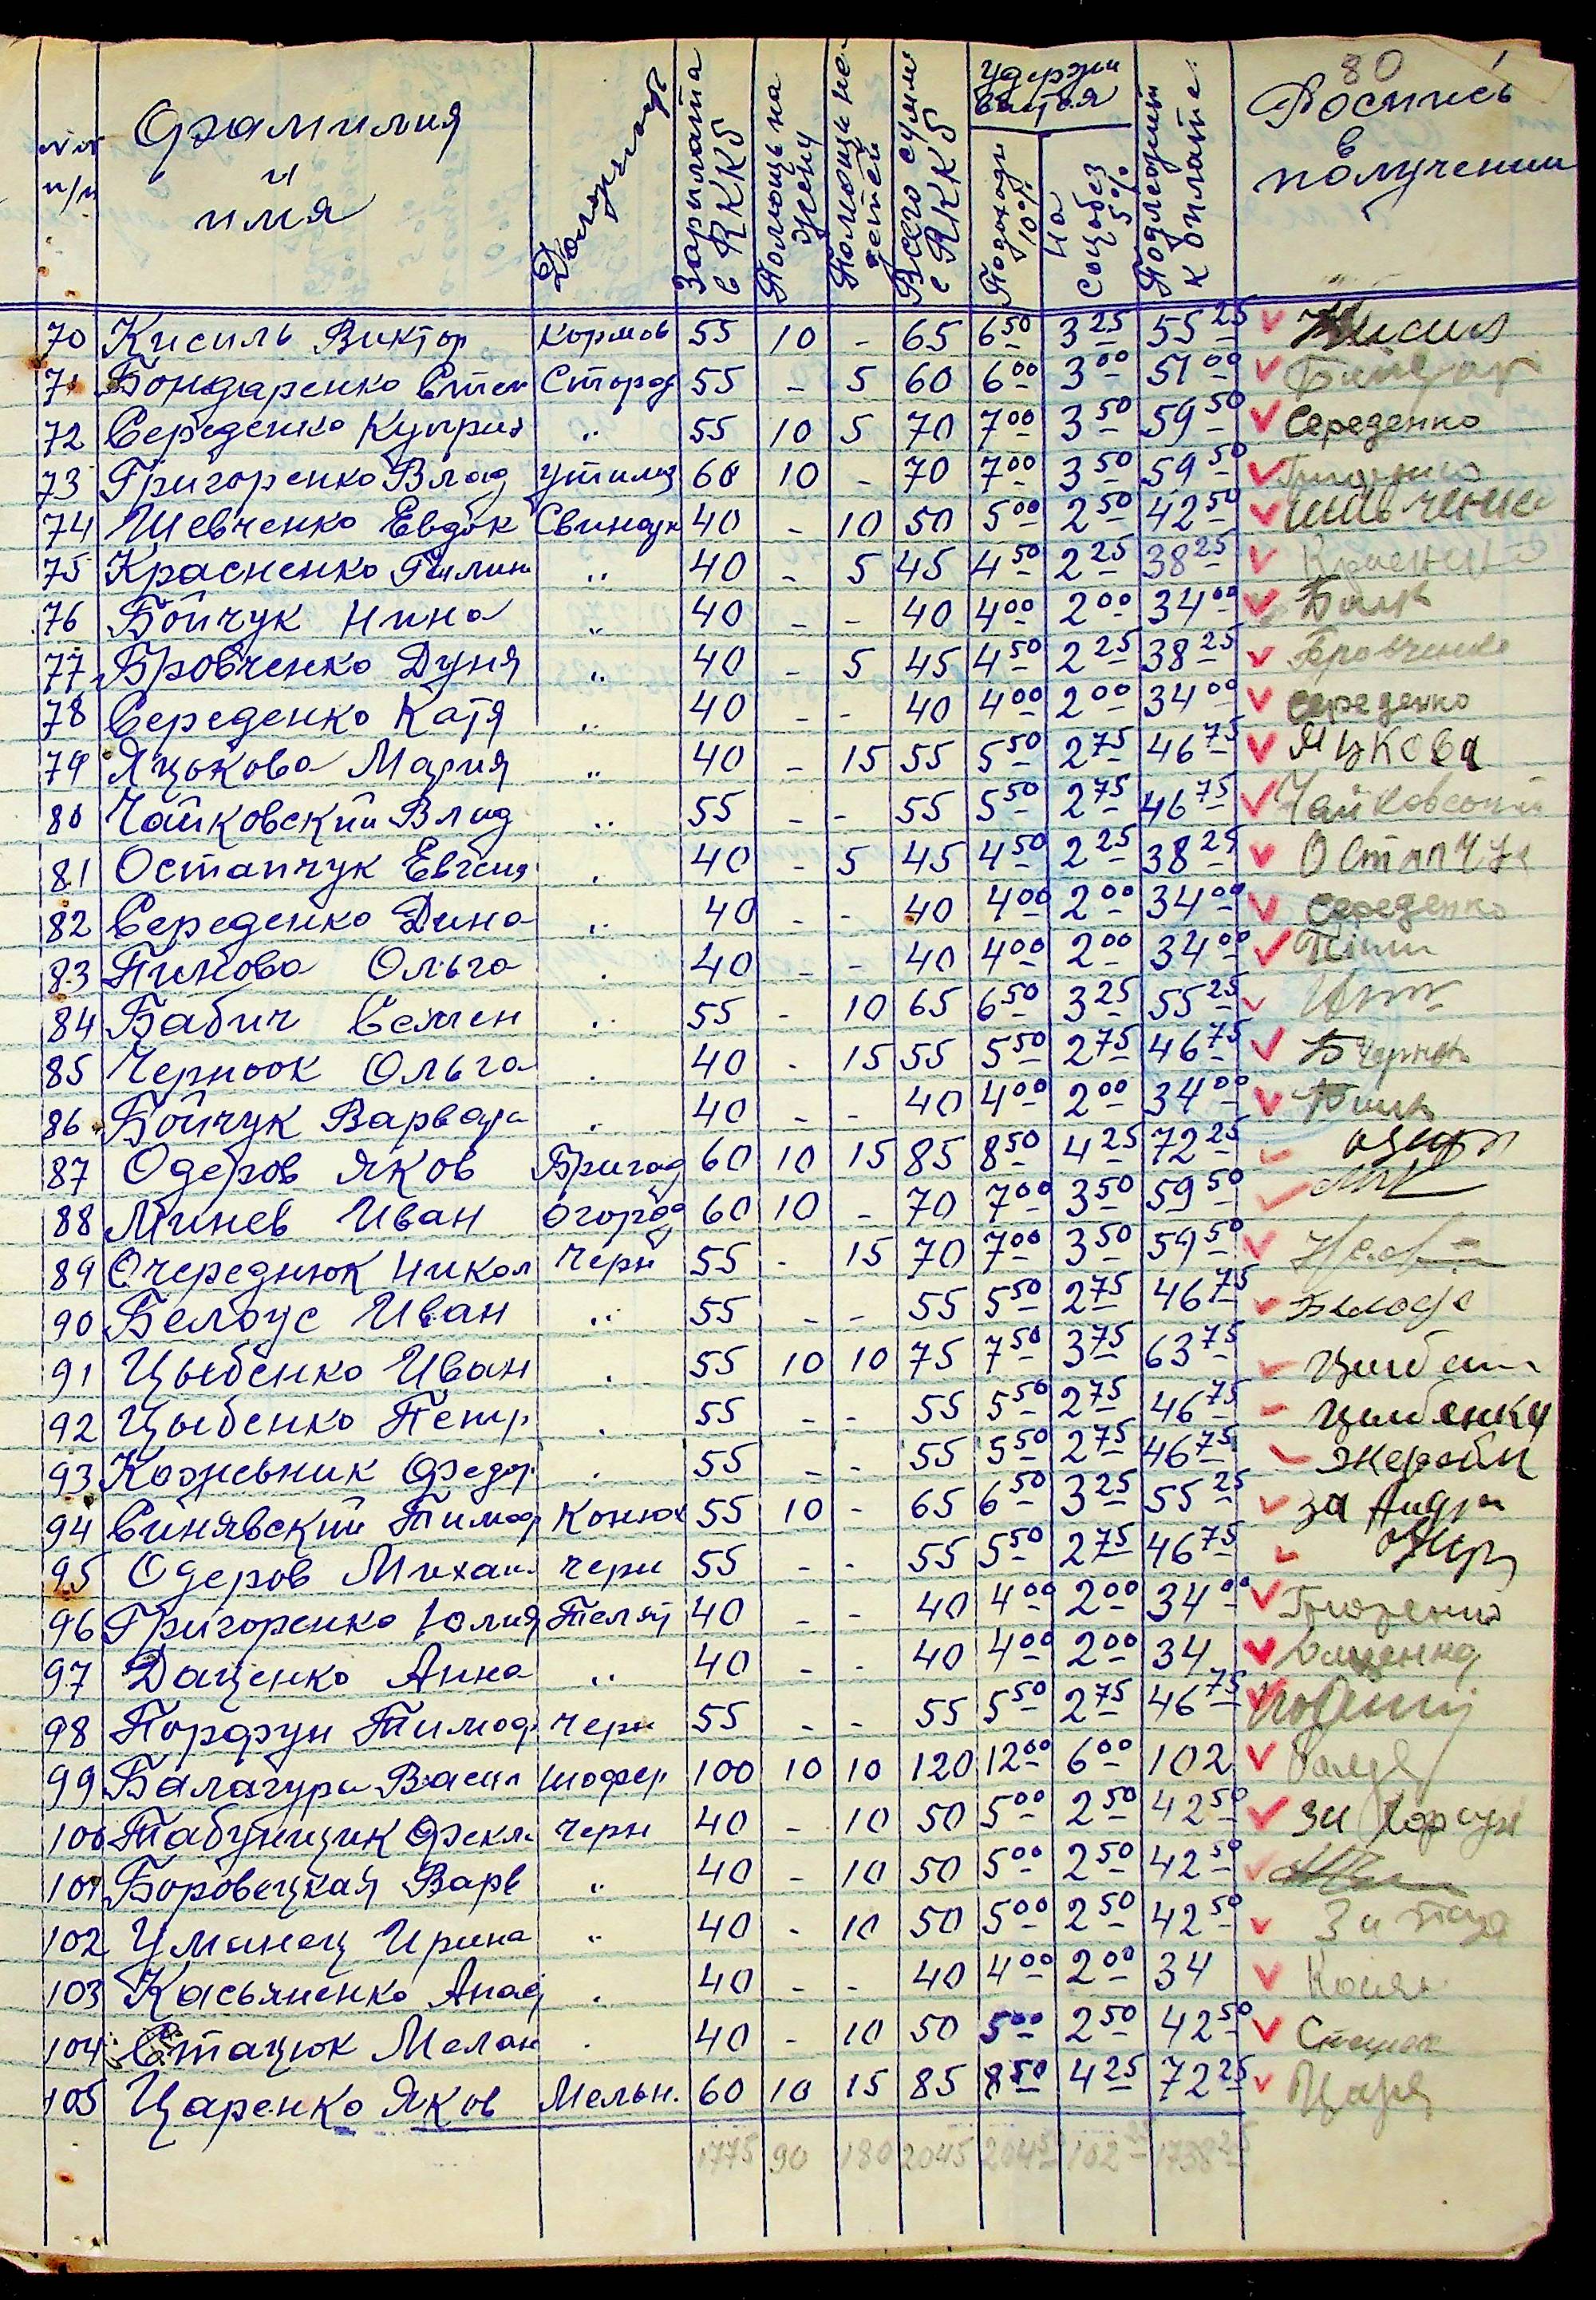 80
№№ п/п
Фамилия и имя
Должность
Зарплата в RKKб
Помощь на жену
Помощь на детей
Всего сумм с RKKб
Удержи вается
Подоходн 10%
на соцобез 5%
Подлежит к оплате
Роспись в получении
70 Кисиль Виктор Кормов 55 10 - 65 6 50 3 25 55 25
71 Бондаренко Степ Сторож 55 - 5 60 6 00 3 00 51 00
72 Середенко Куприя " 55 10 5 70 7 00 3 50 59 50 Середенко
73 Григоренко Влад Утилиз 60 10 - 70 7 00 3 50 59 50
74 Шевченко Евдок Свинарк 40 - 10 50 5 00 2 50 42 50
75 Красненко Галин " 40 - 5 45 4 50 2 25 38 25
76 Бойчук Нина " 40 - - 40 4 00 2 00 34 00
77 Бровченко Дуня " 40 - 5 45 4 50 2 25 38 25 Бровченко
78 Середенко Катя " 40 - - 40 4 00 2 00 34 00 Середенко
79 Яцюкова Мария " 40 - 15 55 5 50 2 75 46 75 Яцкова
80 Чайковский Влад " 55 - - 55 5 50 2 75 46 75 Чайковский
81 Остапчук Евгения " 40 - 5 45 4 50 2 25 38 25 Остапчук
82 Середенко Дина " 40 - - 40 4 00 2 00 34 00 Середенко
83 Пинова Ольга " 40 - - 40 4 00 2 00 34 00
84 Бабич Семен " 55 - 10 65 6 50 3 25 55 25
85 Черноок Ольга " 40 - 15 55 5 50 2 75 46 75
86 Бойчук Варвара " 40 - - 40 4 00 2 00 34 00
87 Одеров Яков Бригад 60 10 15 85 8 50 4 25 72 25
88 Минев Иван Огород 60 10 - 70 7 00 3 50 59 50
89 Очереднюк Никол Черн 55 - 15 70 7 00 3 50 59 50
90 Белоус Иван " 55 - - 55 5 50 2 75 46 75
91 Цыбенко Иван " 55 10 10 75 7 50 3 75 63 75
92 Цыбенко Петр " 55 - - 55 5 50 2 75 46 75
93 Кожевник Федор " 55 - - 55 5 50 2 75 46 75
94 Синявский Тимоф Конюх 55 10 - 65 6 50 3 25 55 25 за
95 Одеров Михаи Черн 55 - - 55 5 50 2 75 46 75
96 Григоренко Юлия Телят 40 - - 40 4 00 2 00 34 00
97 Даценко Анна " 40 - - 40 4 00 2 00 34 Даценко
98 Порфун Тимоф Черн 55 - - 55 5 50 2 75 46 75
99 Балагура Васил Шофер 100 10 10 120 12 00 6 00 102
100 Табунщик Фекла Черн 40 - 10 50 5 00 2 50 42 50 За
101 Боровецкая Варв " 40 - 10 50 5 00 2 50 42 50
102 Уманец Ирина " 40 - 10 50 5 00 2 50 42 50 За
103 Касьяненко Анад " 40 - - 40 4 00 2 00 34
104 Стацюк Мелан " 40 - 10 50 5 00 2 50 42 50
105 Царенко Яков Мельн. 60 10 15 85 8 50 4 25 72 25
1775 90 180 2045 204 50 102 25 1738 25